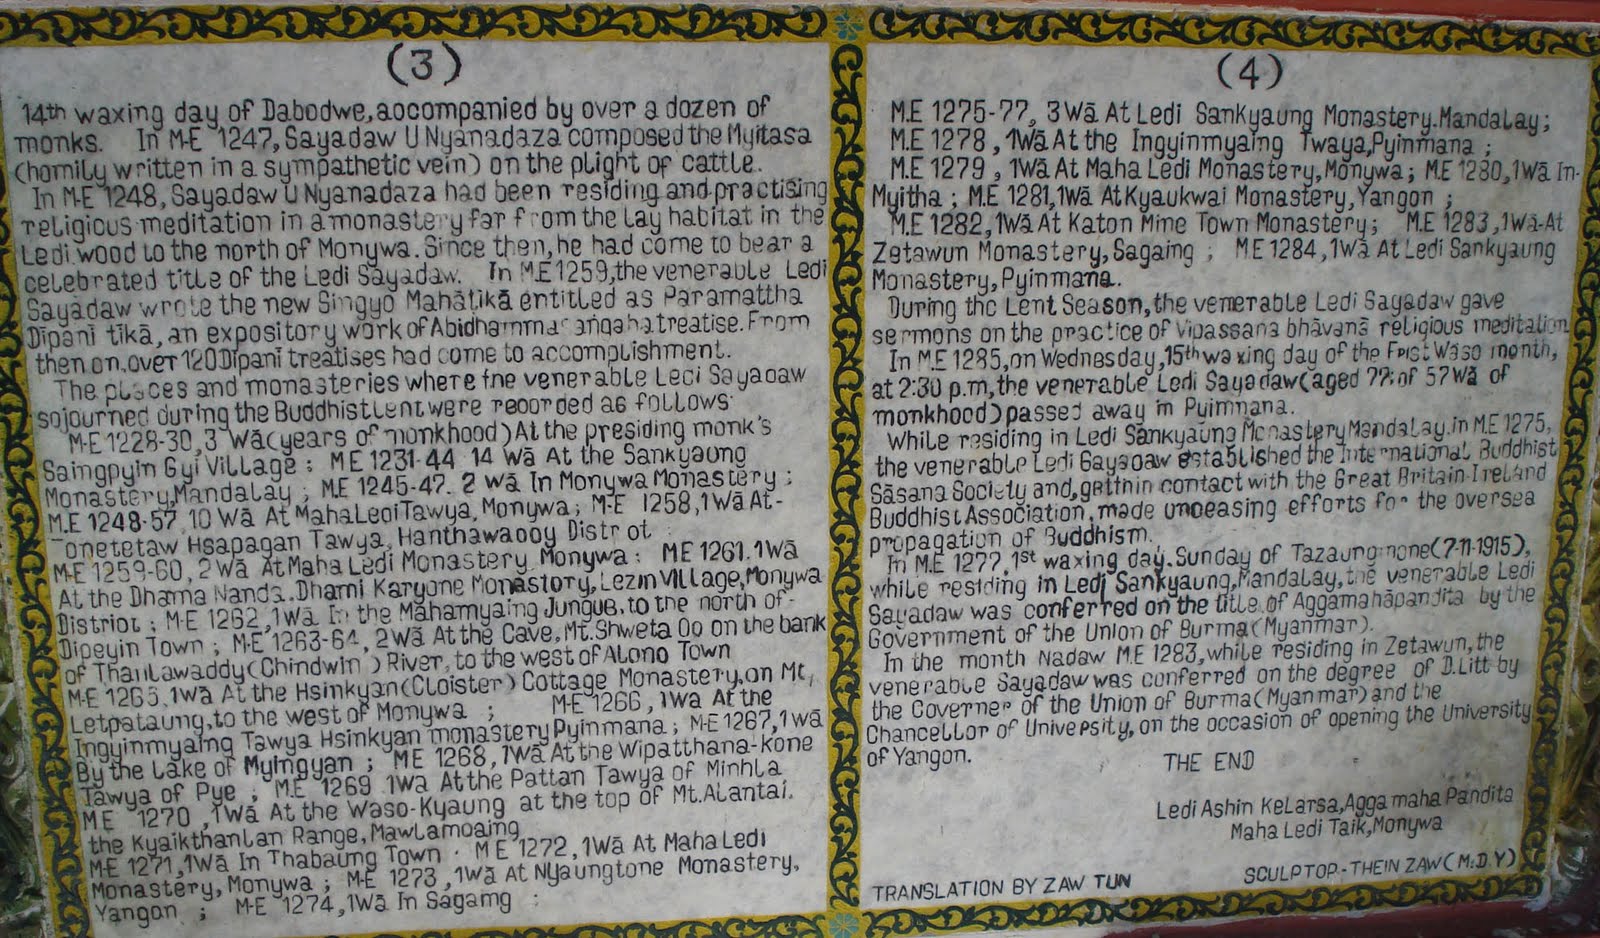 (3)
14th waxing day of Dabodwe, aocompanied by over a dozen of
monks. In M-E 1247, Sayadaw U Nyanadaza composed the Myitasa
(homily written in a sympathetic vein) on the plight of cattle.
In M-E 1248, Sayadaw U Nyanadaza had been residing and practising
religious meditation in a monastery far from the lay habitat in the
Ledi wood to the north of Monywa. Since then, he had come to bear a
celebrated title of the Ledi Sayadaw. In M.E 1259, the venerable Ledi
Sayadaw wrote the new Singyo Mahātikā entitled as Paramattha
Dīpanī tikā, an expository work of Abidhamma sangaha treatise. From
then on, over 120 Dīpanī treatises had come to accomplishment.
The places and monasteries where the venerable Ledi Sayadaw
sojourned during the Buddhist Lent were reoorded as follows
M-E 1228-30, 3 Wā (years of monkhood) At the presiding monk's
Saingpyin Gyi Village ; M E 1231-44 14 Wā At the Sankyaung
Monastery, Mandalay ; M.E 1245-47. 2 Wā In Monywa Monastery ;
M.E 1248-57, 10 Wā At Maha Ledi Tawya, Monywa ; M-E 1258, 1Wā At-
Hsapagan Tawya, Hanthawaooy
M-E 1259-60, 2 Wā At Maha Ledi Monastery Monywa : M E 1261. 1Wā
At the Dhama Nanda. Dhami Karyone Monastory, Lezin Village, Monywa
District ; M-E 1262, 1Wā In the Mahamyaing Jungue, to the north of-
Dipeyin Town ; M-E 1263-64, 2 Wā At the Cave, Mt. Shweta Oo on the bank
of Thanlawaddy (Chindwin) River, to the west of Alono Town
M-E 1265, 1Wā At the Hsinkyan (Cloister) Cottage Monastery, on Mt,
Letpataung, to the west of Monywa ; M-E 1266, 1Wa At the
Ingyinmyaing Tawya Hsinkyan monastery Pyinmana ; M-E 1267, 1 Wā
By the Lake of Myingyan ; M E 1268, 1Wā At the Wipatthana-Kone
Tawya of Pye ; M-E 1269 1Wa At the Pattan Tawya of Minhla
M E 1270, 1Wā At the Waso-Kyaung at the top of Mt. Alantai.
the Kyaikthanlan Range, Mawlamoaing
M-E 1271, 1Wā In Thabaung Town . M E 1272, 1Wā At Maha Ledi
Monastery, Monywa ; M-E 1273, 1Wā At Nyaungtone Monastery,
Yangon ; M-E 1274, 1Wā In Sagamg :
(4)
M.E 1275-77, 3 Wā At Ledi Sankyaung Monastery. Mandalay ;
M.E 1278, 1Wā At the Ingyinmyaing Twaya, Pyinmana ;
M.E 1279, 1Wā At Maha Ledi Monastery, Monywa ; M.E 1280, 1Wā In-
Myitha ; M.E 1281, 1Wā At Kyaukwai Monastery, Yangon ;
M.E 1282, 1Wā At Katon Mine Town Monastery ; M.E 1283, 1Wā-At
Zetawun Monastery, Sagaing ; M.E 1284, 1Wā At Ledi Sankyaung
Monastery, Pyinmana.
During the Lent Season, the venerable Ledi Sayadaw gave
sermons on the practice of Vipassana bhāvanā religious meditation
In M.E 1285, on Wednesday, 15th waxing day of the First Waso month,
at 2:30 p.m, the venerable Ledi Sayadaw (aged 77: of 57 Wā of
monkhood) passed away in Pyinmana.
While residing in Ledi Sankyaung Monastery Mandalay. in M.E 1275,
the venerable Ledi Sayadaw established the International Buddhist
Sāsana Society and, gettnin contact with the Great Britain-Ireland
Buddhist Association, made unceasing efforts for the oversea
propagation of Buddhism.
In M.E 1277, 1st waxing day. Sunday of Tazaungmone (7-11-1915),
while residing in Ledi Sankyaung, Mandalay, the venerable Ledi
Sayadaw was conferred on the title of Aggamahāpandita by the
Government of the Union of Burma (Myanmar).
In the month Nadaw M.E 1283, while residing in Zetawun, the
venerable Sayadaw was conferred on the degree of D.Litt by
the Governer of the Union of Burma (Myanmar) and the
Chancellor of University, on the occasion of opening the University
of Yangon.
THE END
Ledi Ashin Kelarsa, Agga maha Pandita
Maha Ledi Taik, Monywa
TRANSLATION BY ZAW TUN
SCULPTOP.- THEIN ZAW (M.D.Y)